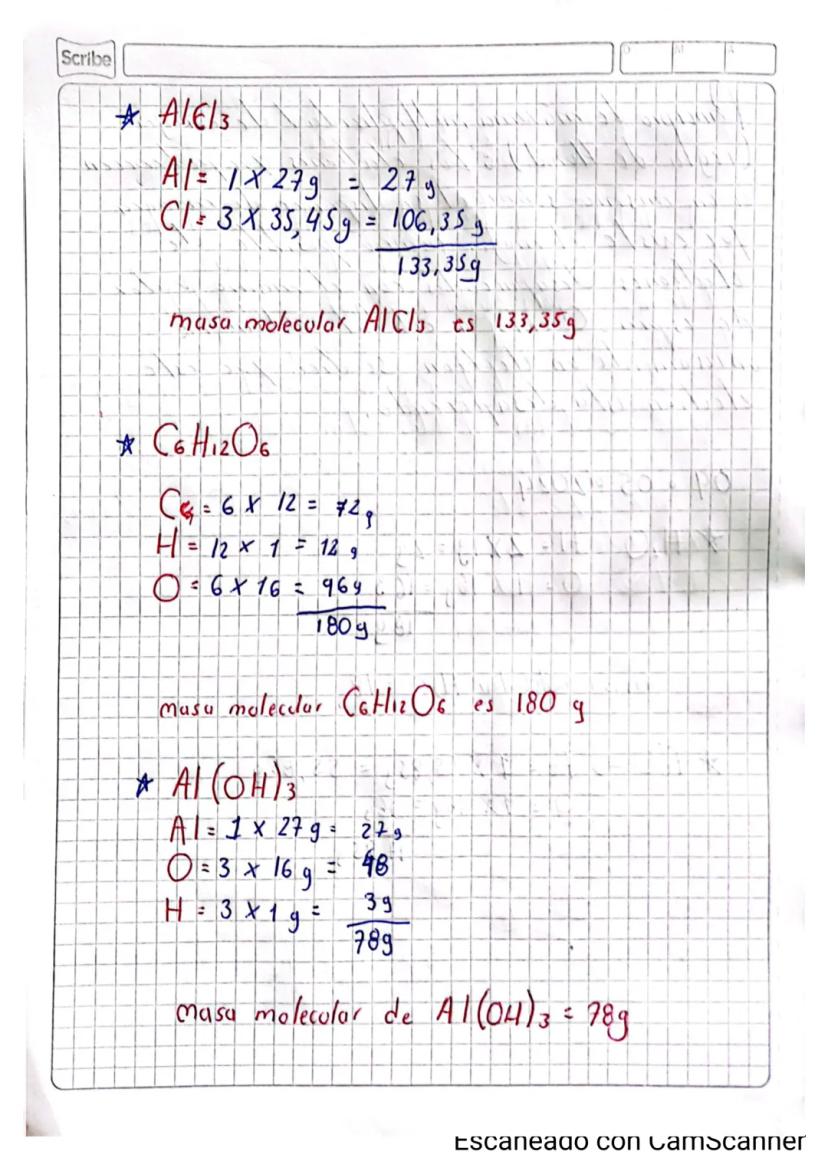 Scribe
AlCl3
Al= 1 X 27g = 27g
Cl= 3 X 35,45g = 106,35g
133,35g
masa molecular AlCl3 es 133,35g
C6H12O6
C = 6 X 12 = 72g
H = 12 x 1 = 12g
O = 6 X 16 = 96g
180g
masa molecular C6H12O6 es 180 g
Al(OH)3
Al= 1 x 27g = 27g
O = 3 x 16g = 48
H = 3 x 1g = 3g
78g
masa molecolar de Al(OH)3 = 78g
Escaneado con CamScanner